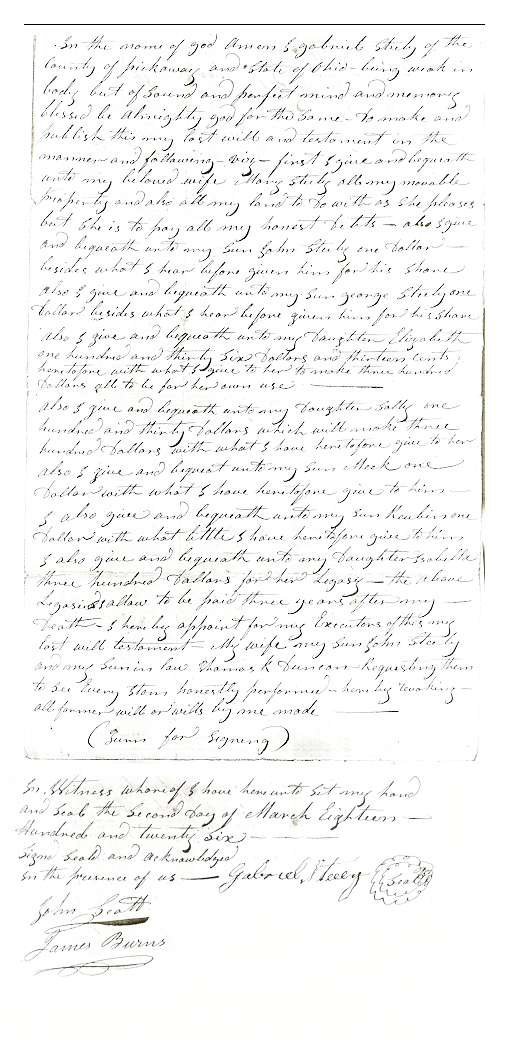 In the name of god Amen I gabriel Steely of the
County of pickaway and State of Ohio - being weak in
body but of Sound and perfect mind and memory
blessed be Almighty god for the Same - to make and
publish this my last will and testament in the
manner and following - viz - first I give and bequeath
unto my beloved wife Mary Steely all my movable
Property and also all my land to Do with as She pleases
but She is to pay all my honest Debts - also I give
and bequeath unto my Sun John Steely one Dollar -
besides what I hear before given him for his Share
also I give and bequeath unto my Sun george Steely one
Dollar besides what I hear before given him for his Share
also I give and bequeath unto my Daughter Elizabeth
one hundred and thirty Six Dollars and thirteen Cents
heretofore with what I give to her to make three hundred
Dollars all to be for her own use
also I give and bequeath unto my Daughter Sally one
hundred and thirty Dollars which will make three
hundred Dollars with what I have heretofore give to her
also I give and bequeat unto my Sun Meek one
Dollar with what I have heretofore give to him -
I also give and bequeath unto my Sun Reubin one
Dollar with what little I have heretofore give to him
I also give and bequeath unto my Daughter Isabella
three hundred Dollars for her Legasy - the above
Legasies allow to be paid three years after my -
Death - I hereby appoint for my Executors of this my
last will testament - My wife my Sun John Steely
and my Sun in law Thomas R Duncan - Requesting them
to See Every Item honestly performed - hereby revoking -
all former will or wills by me made
(Turn for Signing)
In Witness whareof I have here unto Set my hand
and Seal the Second Day of March Eighteen -
Hundred and twenty Six -
Signd Seald and acknowledged
In the presence of us - Gabriel Steely Seal
John Scott
James Burns